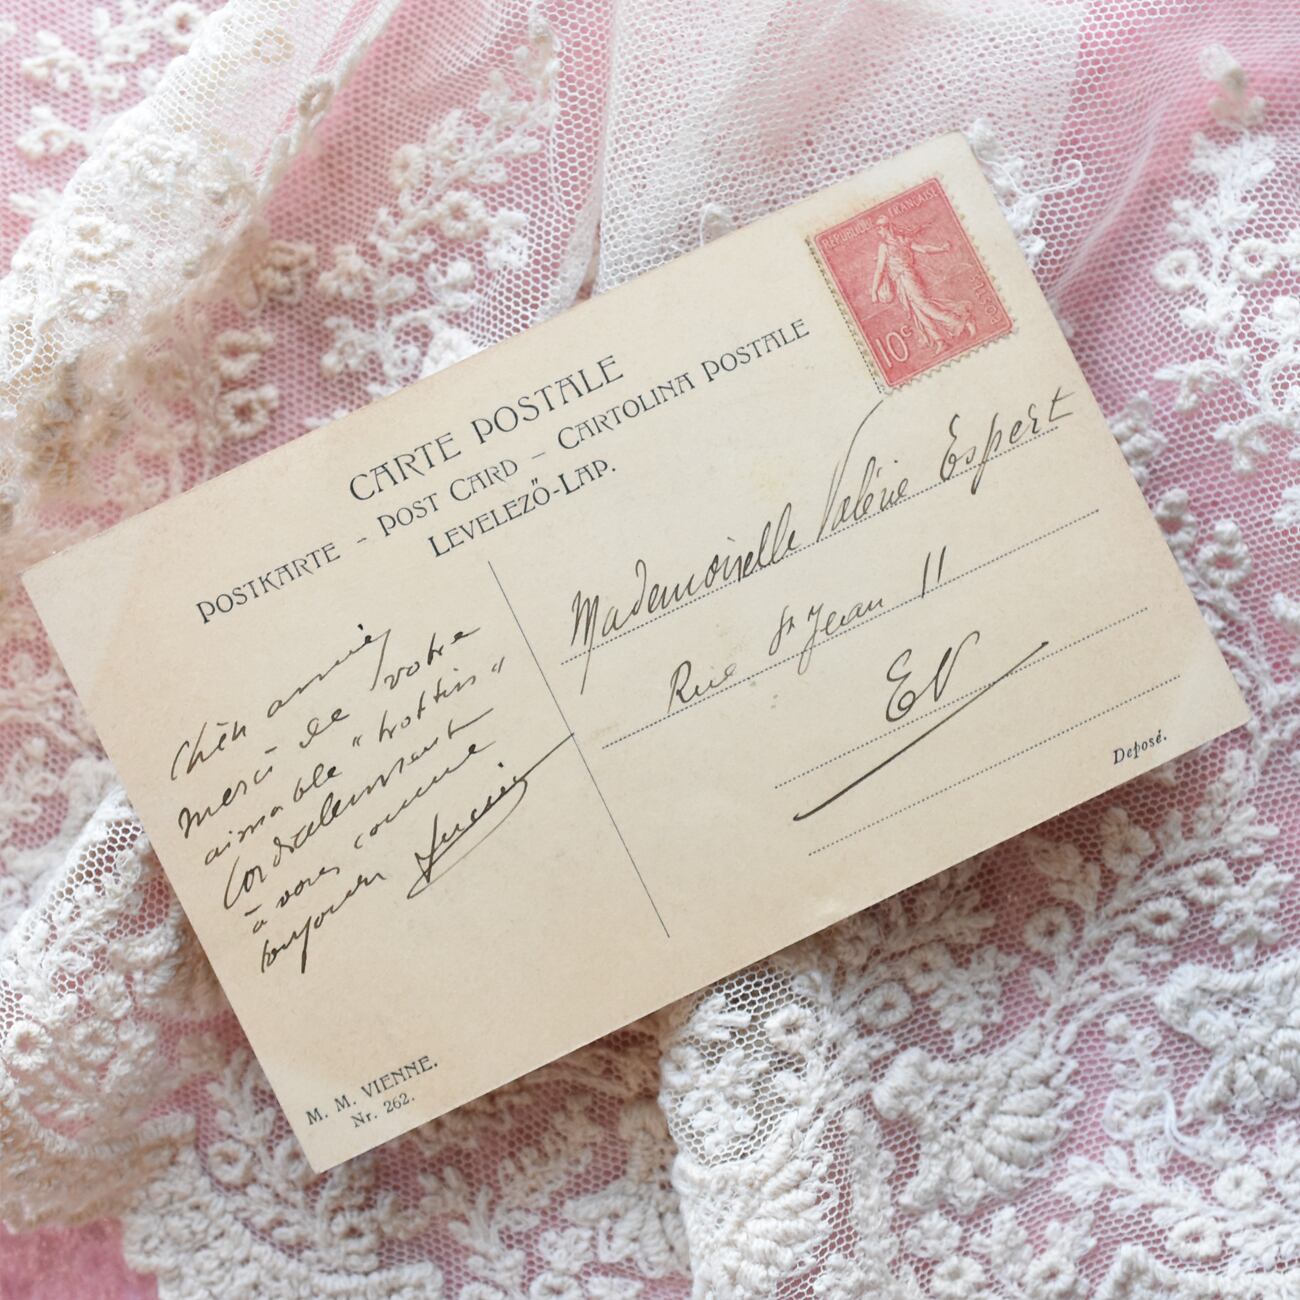 CARTE POSTALE
POSTKARTE – POST CARD – CARTOLINA POSTALE
LEVELEZŐ-LAP.
RÉPUBLIQUE FRANÇAISE
10c
Chèr amie,
merci de votre
aimable "trottin"
Cordialement
à vous comme
toujours
Lucien
Mademoiselle Valérie Espert
Rue St Jean 11
EV
Deposé.
M. M. VIENNE.
Nr. 262.